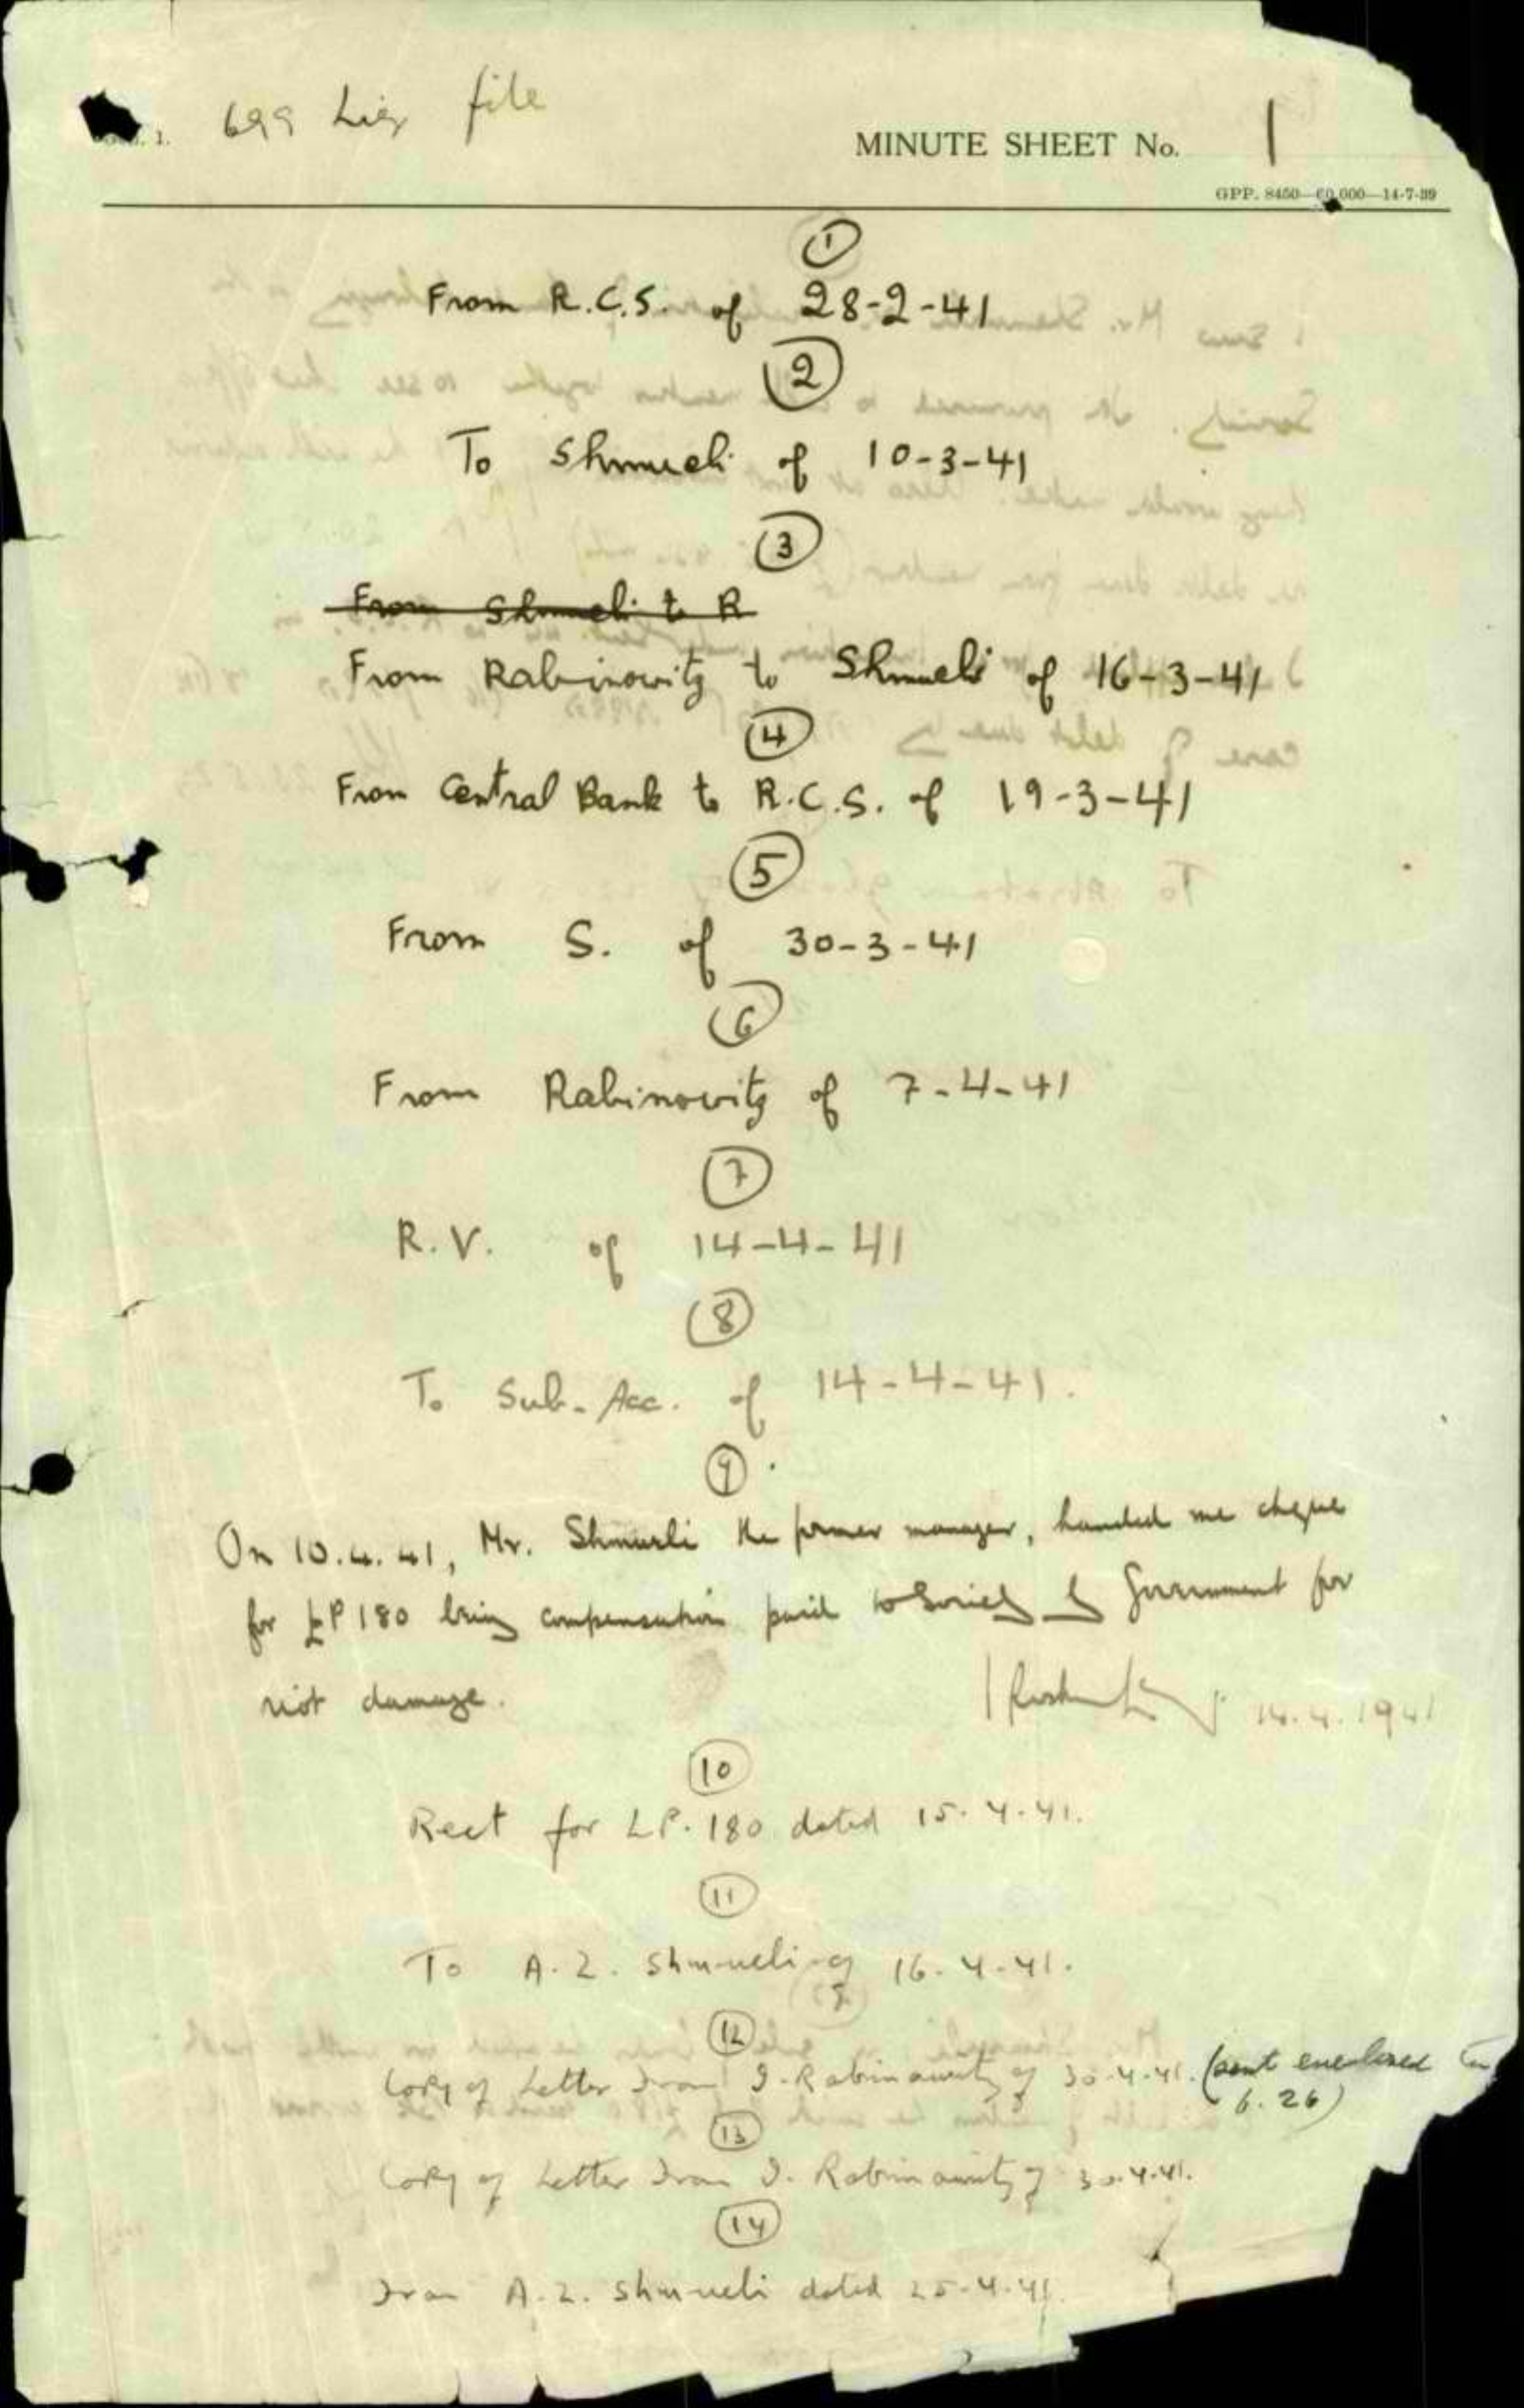 699 Liq file
MINUTE SHEET No. 1
GPP. 8450—60,000—14-7-39
1
From R.C.S. of 28-2-41
2
To Shmueli of 10-3-41
3
From Shmueli to R
From Rabinowitz to Shmueli of 16-3-41
4
From Central Bank to R.C.S. of 19-3-41
5
From S. of 30-3-41
6
From Rabinowitz of 7-4-41
7
R.V. of 14-4-41
8
To Sub-Acc. of 14-4-41.
9
On 10.4.41, Mr. Shmueli the former manager, handed me cheque
for £P 180 being compensation paid to Society by Government for
riot damage.
14.4.1941
10
Rect for LP. 180 dated 15.4.41.
11
To A.Z. Shmueli of 16.4.41.
12
Copy of Letter from I. Rabinowitz of 30.4.41. (sent enclosed in
6.26)
13
Copy of Letter from I. Rabinowitz of 30.4.41.
14
From A.Z. Shmueli dated 25.4.41.